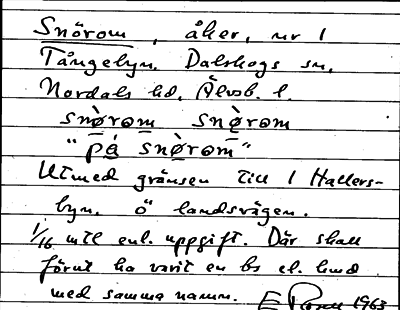 Snörom, åker, nr 1
Tångelyn. Dalskogs sn.
Nordals hd. Älvsb. l.
snø̀rom snø̀rom
"på snø̀rom"
Utmed gränsen till 1 Hallers-
byn. ö landsvägen.
1/16 mtl enl. uppgift. Där skall
förut ha varit en bs el. lmd
med samma namn. E 1963